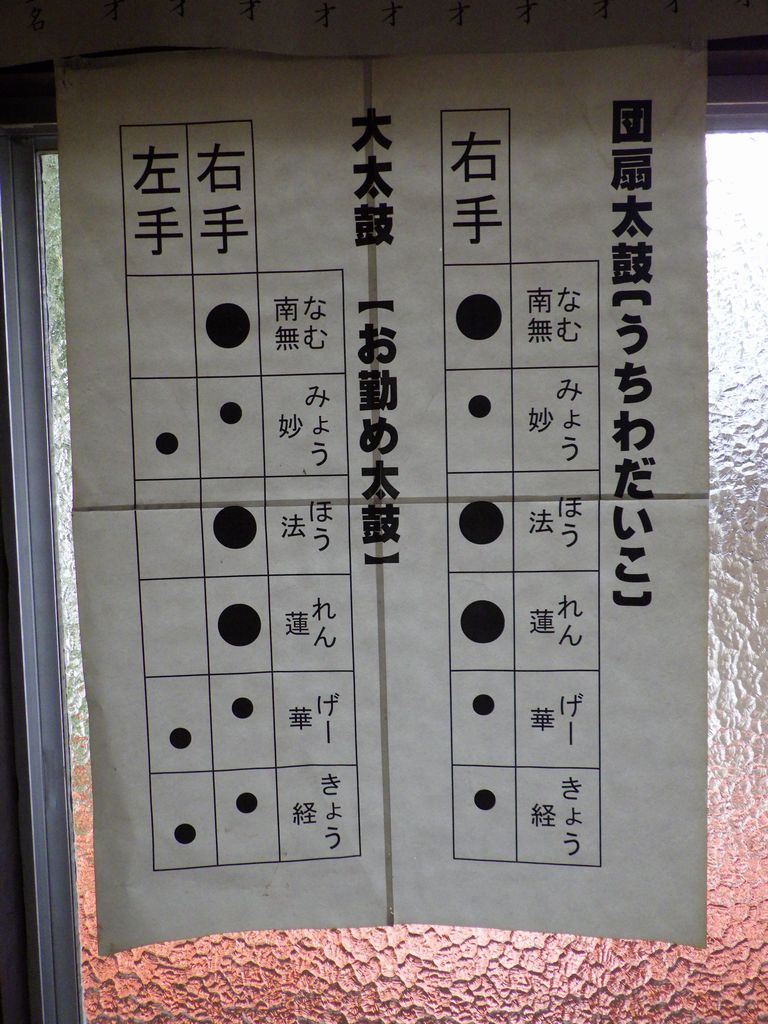 名 才 才 才 才 才 才 才 才 才
団扇太鼓【うちわだいこ】
右手
なむ
南無
みょう
妙
ほう
法
れん
蓮
げー
華
きょう
経
大太鼓 【お勤め太鼓】
右手
左手
なむ
南無
みょう
妙
ほう
法
れん
蓮
げー
華
きょう
経